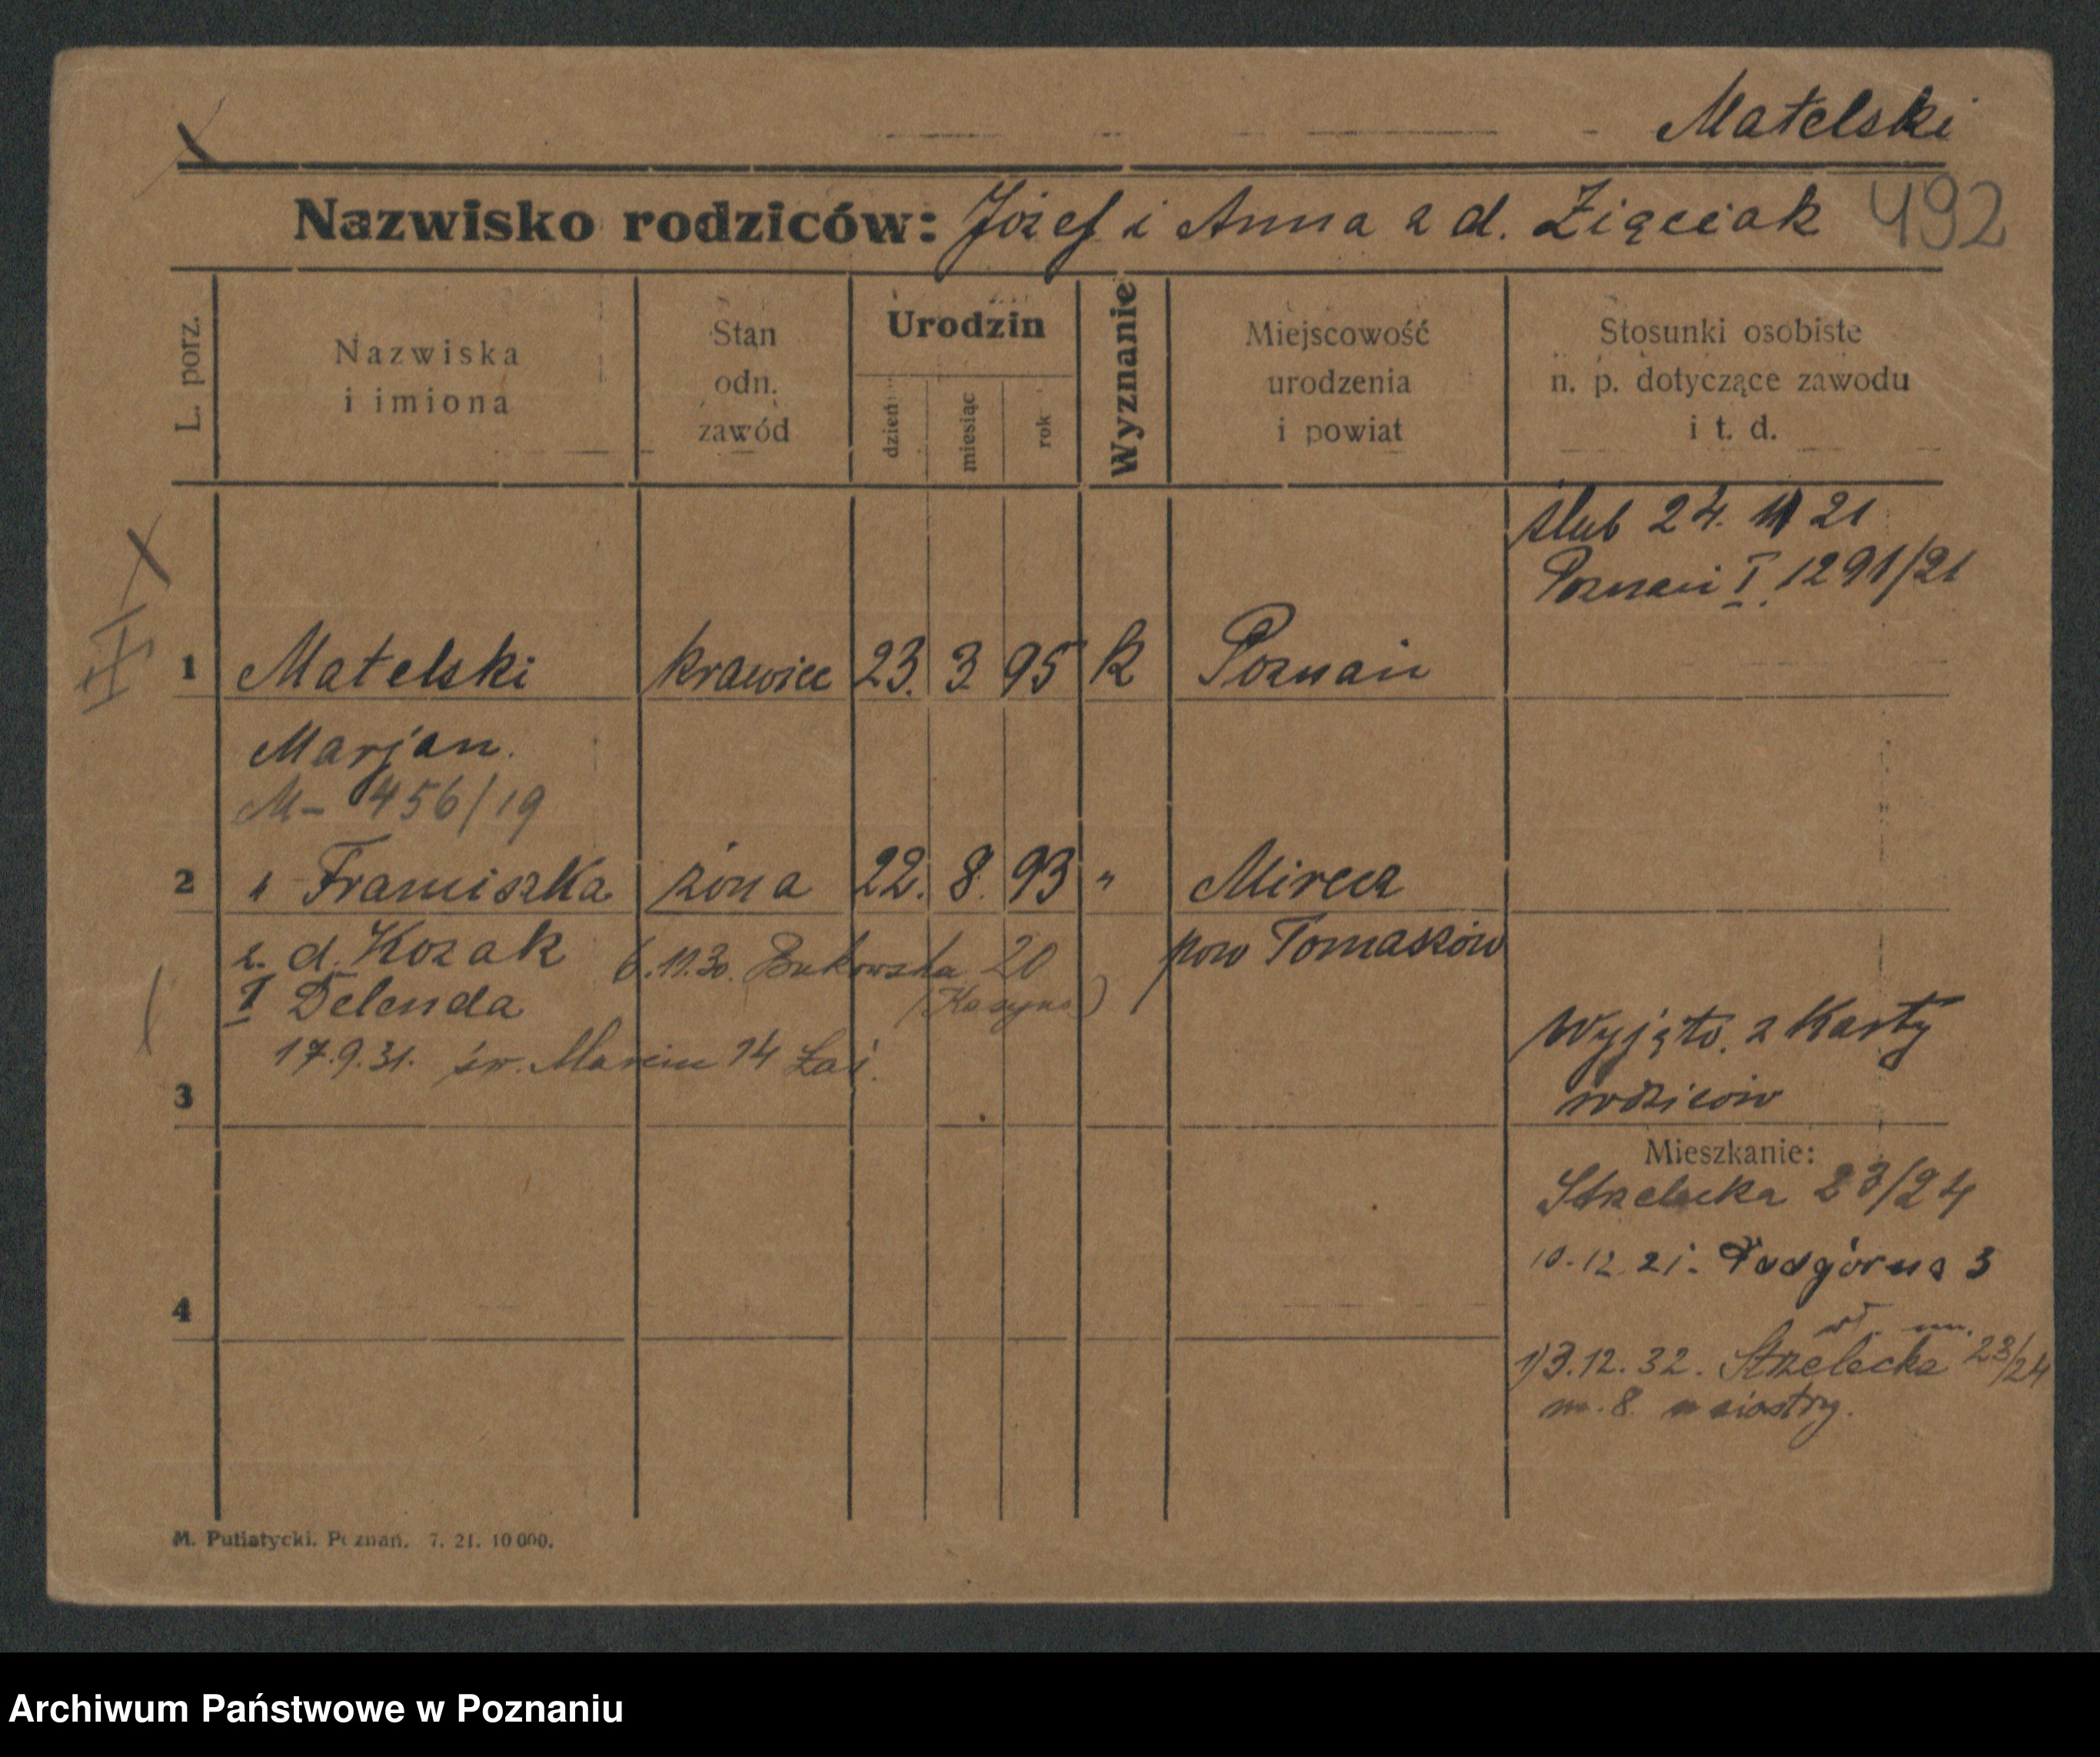 Matelski
Nazwisko rodziców: Józef i Anna z d. Zięciak 492
L. porz.
Nazwiska
i imiona
Stan
odn.
zawód
Urodzin
dzień
miesiąc
rok
Wyznanie
Miejscowość
urodzenia
i powiat
Stosunki osobiste
n. p. dotyczące zawodu
i t. d.
ślub 24. 11 21
Poznań I. 1291/21
1 Matelski krawiec 23. 3 95 K Poznań
Marjan.
M- 456/19
2 " Franciszka żona 22. 8. 93 " Mircza
z. d. Kozak 6.11.30. Bukowska 20 pow Tomaszów
I Delenda (Kasyno)
17.9.31. św. Marcin 14
Wyjęto. z Karty
rodziców
3
Mieszkanie:
Strzelecka 23/24
10.12.21. Podgórna 3
4
1) 3.12.32. Strzelecka 23/24
m. 8. u siostry.
M. Putiatycki. Poznań. 7. 21. 10 000.
Archiwum Państwowe w Poznaniu